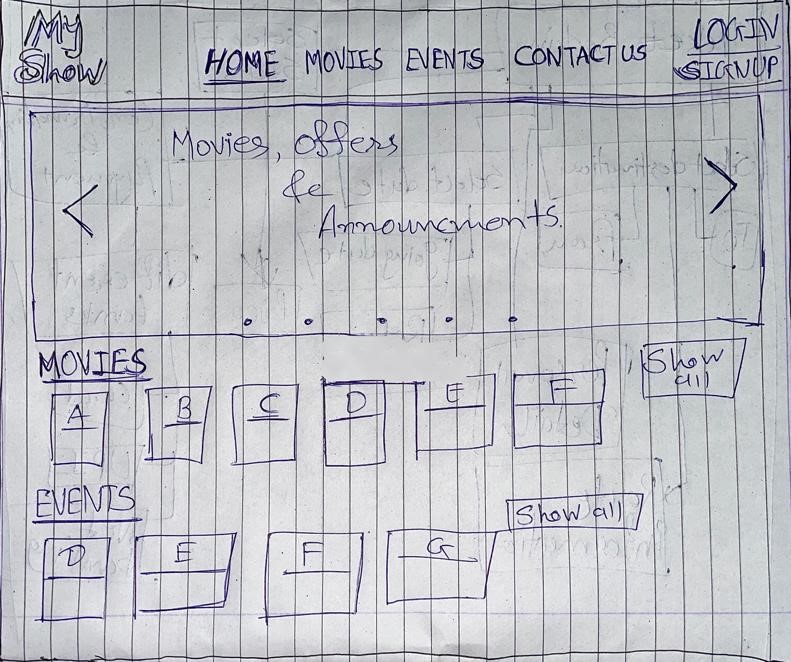 My
Show
HOME MOVIES EVENTS CONTACT US
LOGIN
SIGNUP
Movies, offers
&
Announcments.
MOVIES
Show
all
A B C D E F
EVENTS
Show all
D E F G